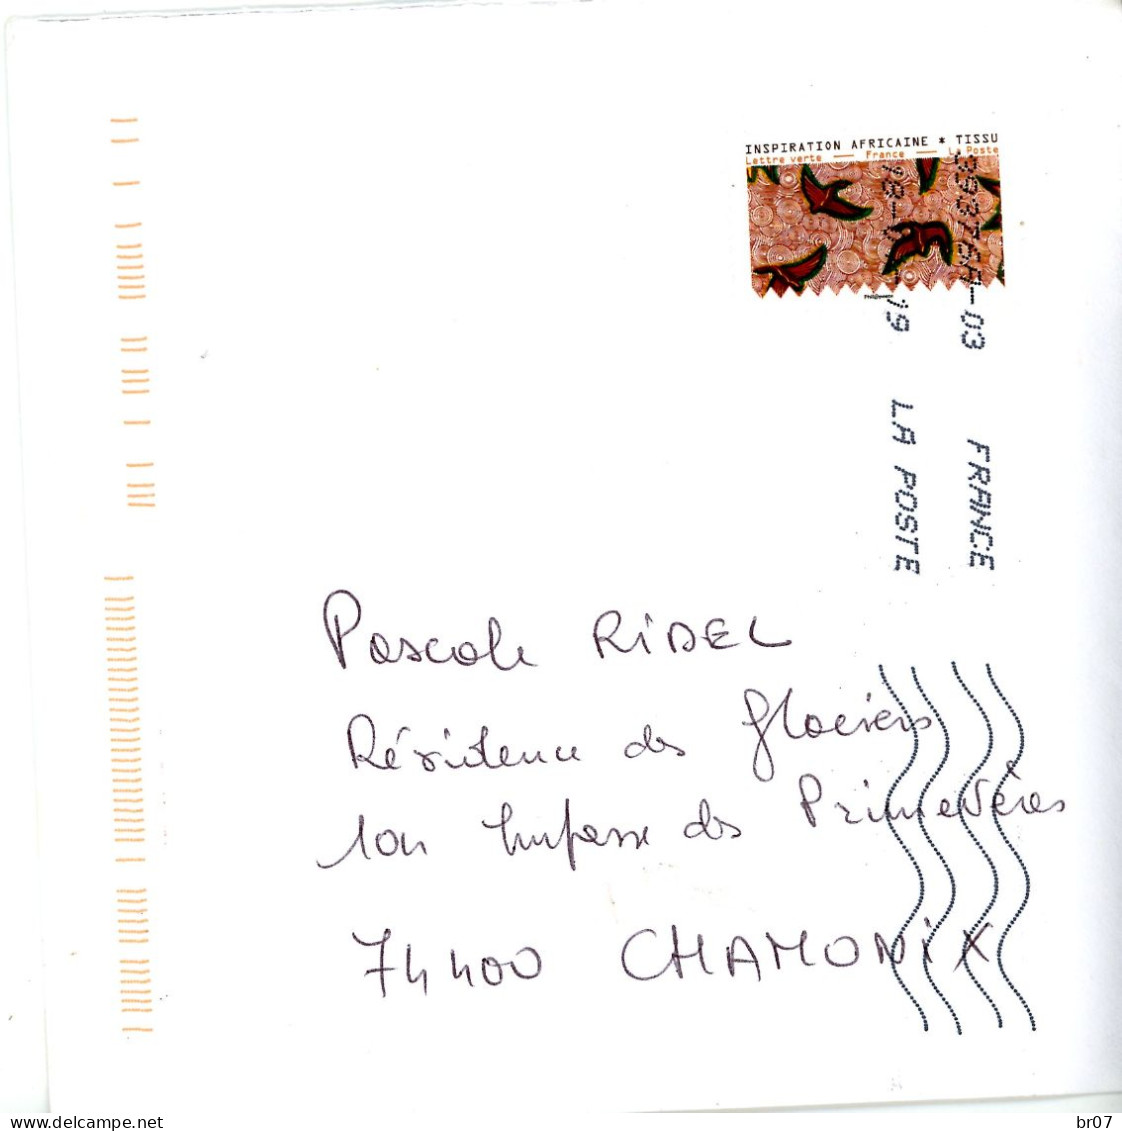 INSPIRATION AFRICAINE * TISSU
Lettre verte — France — La Poste
39376A-03 FRANCE
19 LA POSTE
Pascale RIDEL
Résidence des Glaciers
104 Impasse des Primevères
74400 CHAMONIX
www.delcampe.net
br07